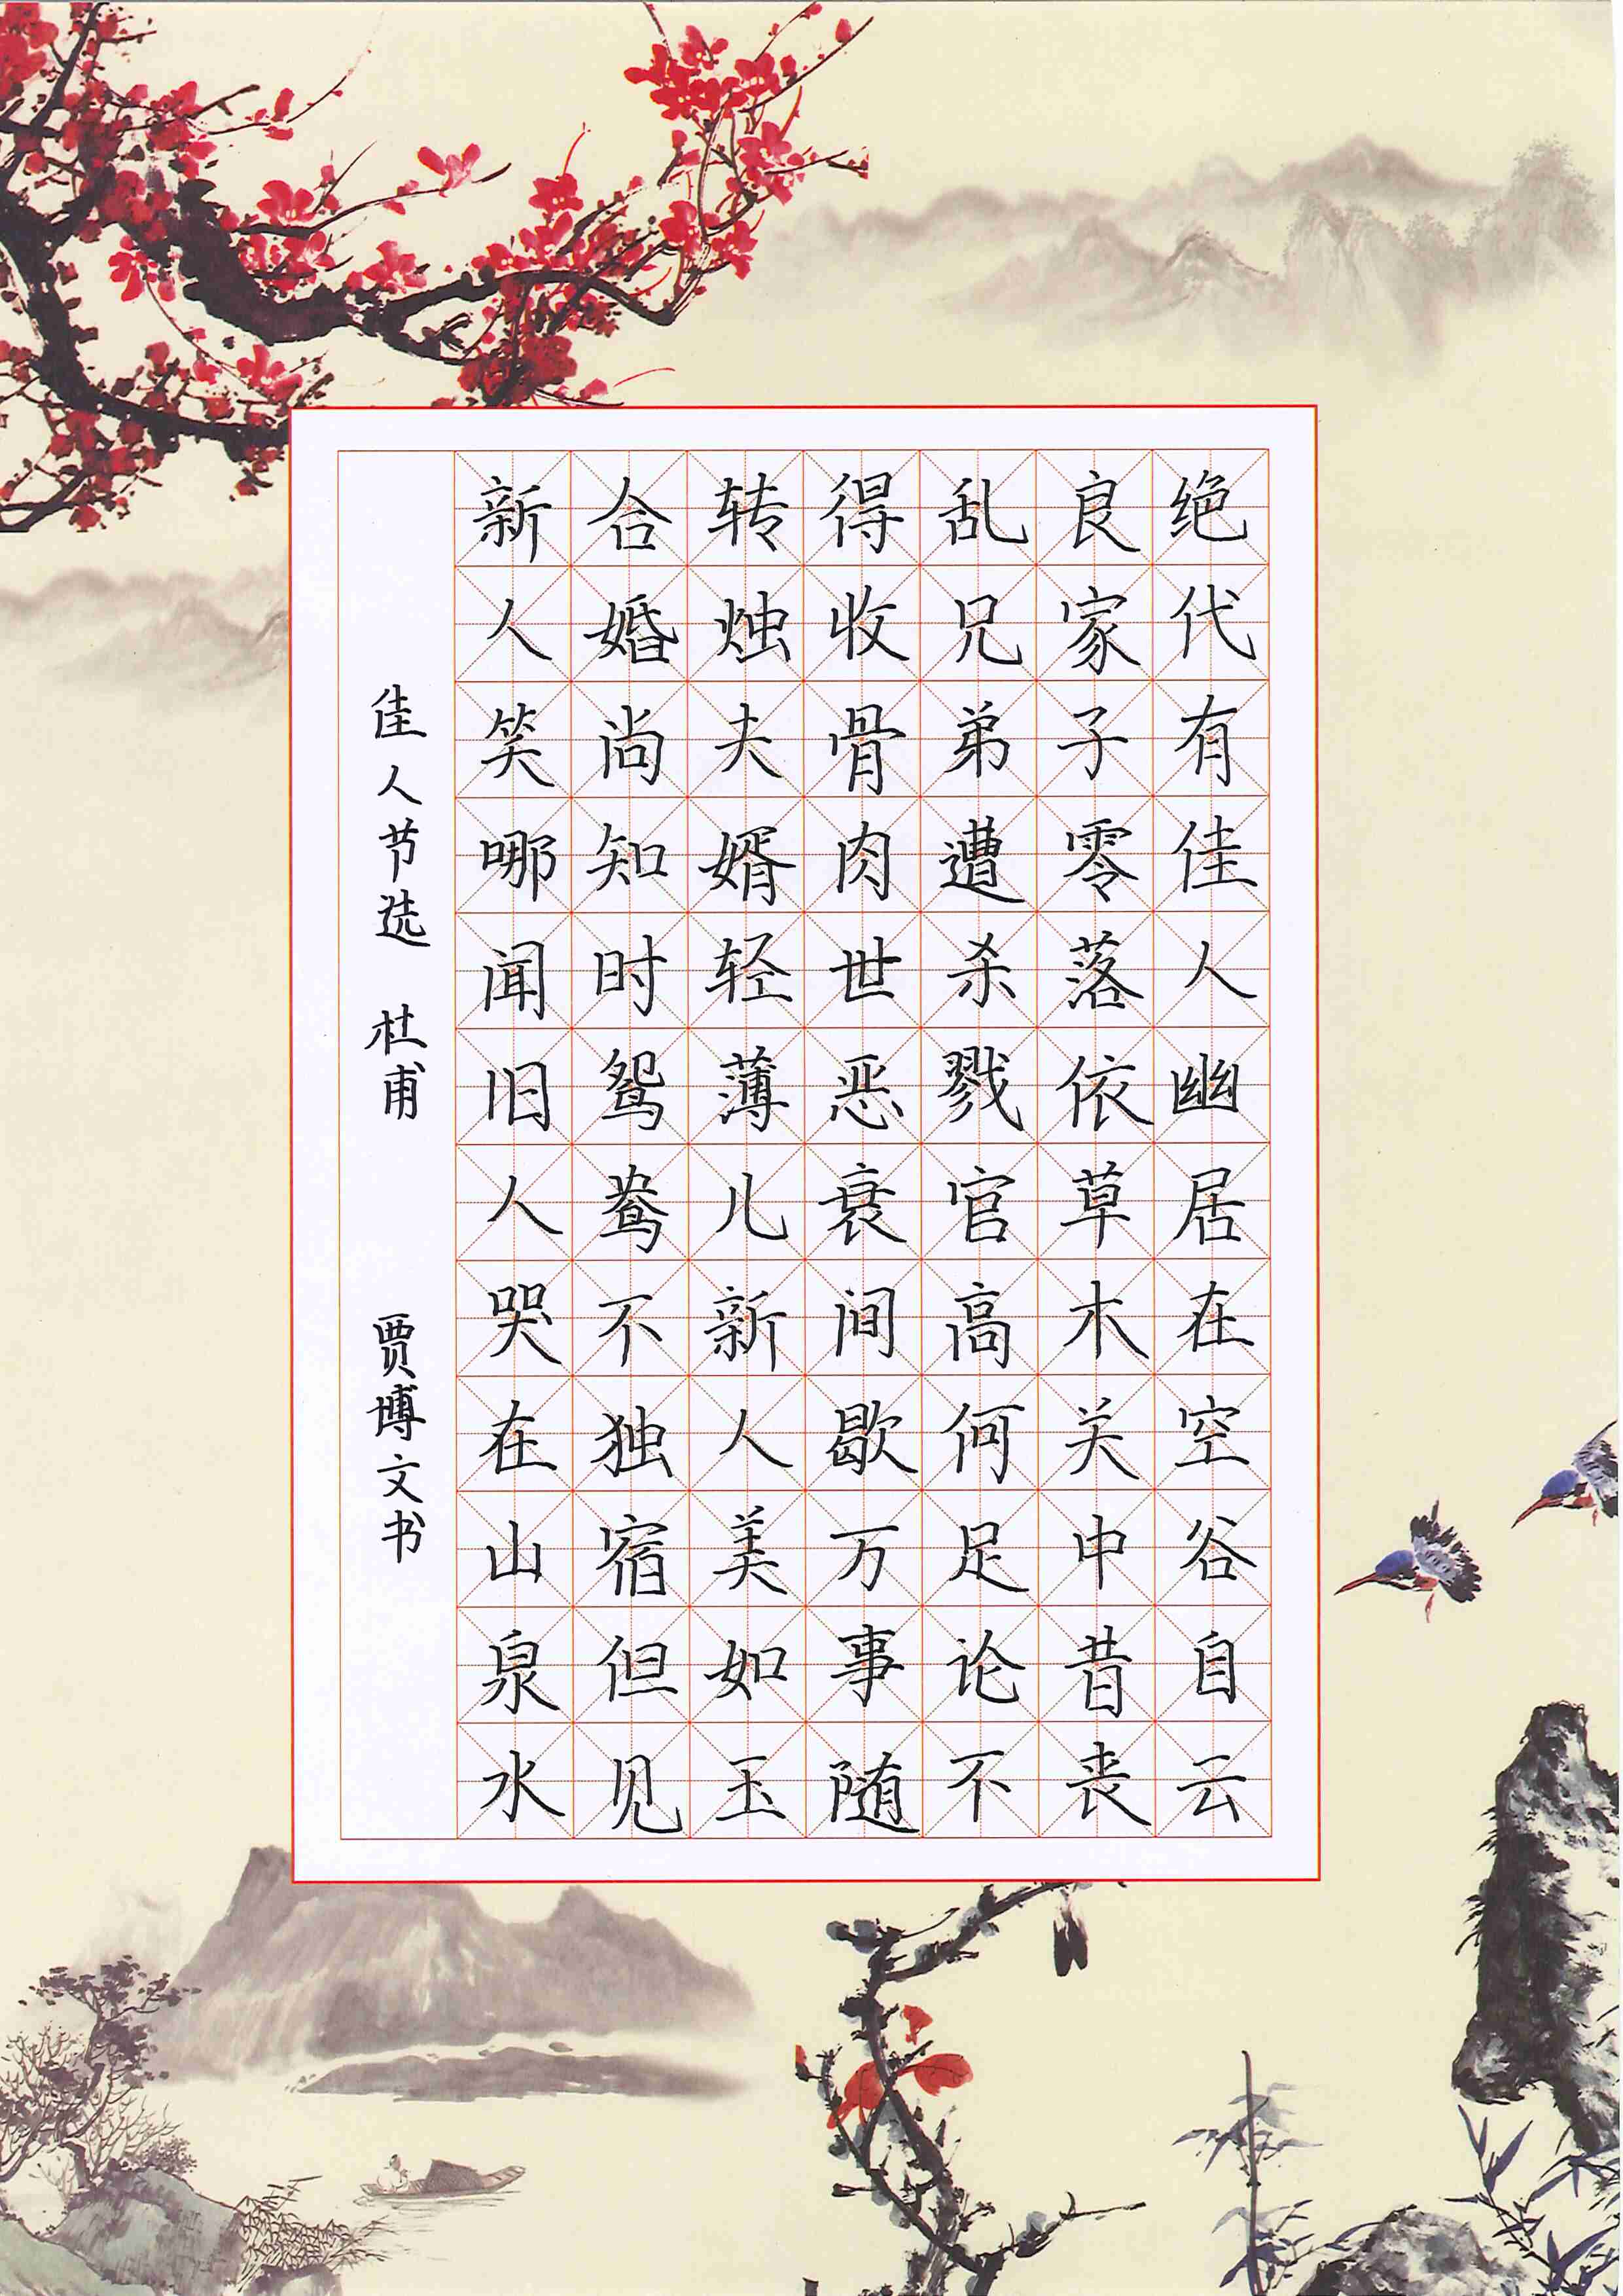 绝代有佳人幽居在空谷自云
良家子零落依草木关中昔丧
乱兄弟遭杀戮官高何足论不
得收骨肉世恶衰间歇万事随
转烛夫婿轻薄儿新人美如玉
合婚尚知时鸳鸯不独宿但见
新人笑哪闻旧人哭在山泉水
佳人节选 杜甫 贾博文书